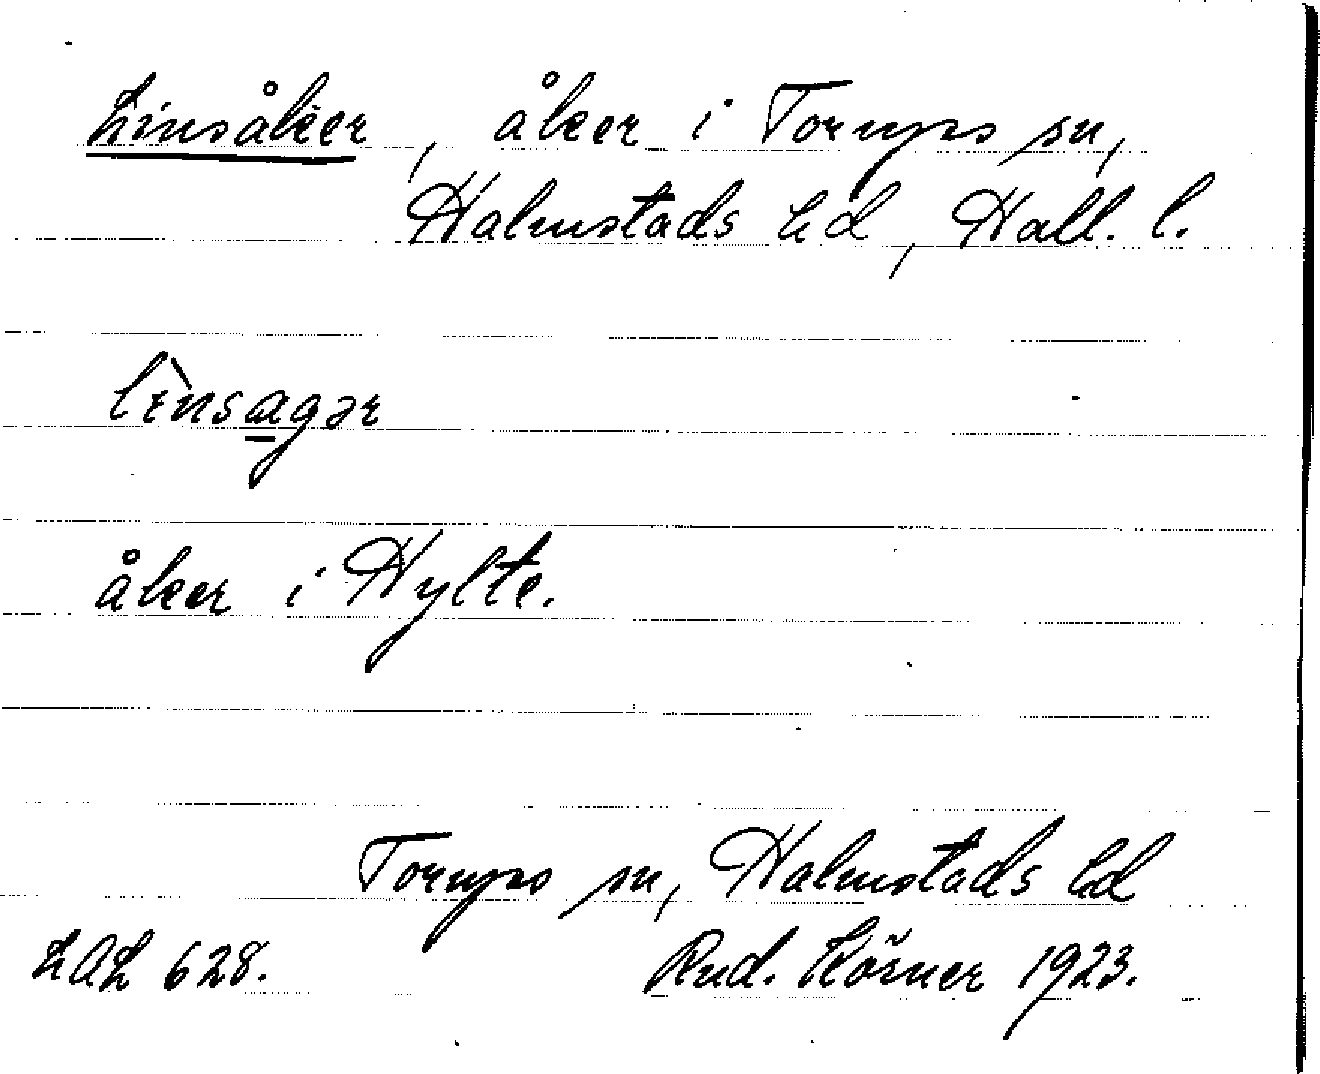 Linsåker, åker i Torups sn,
Halmstads hd, Hall. l.
lìnsagər
åker i Hylte.
Torups sn, Halmstads hd
LAL 628. Rud. Körner 1923.